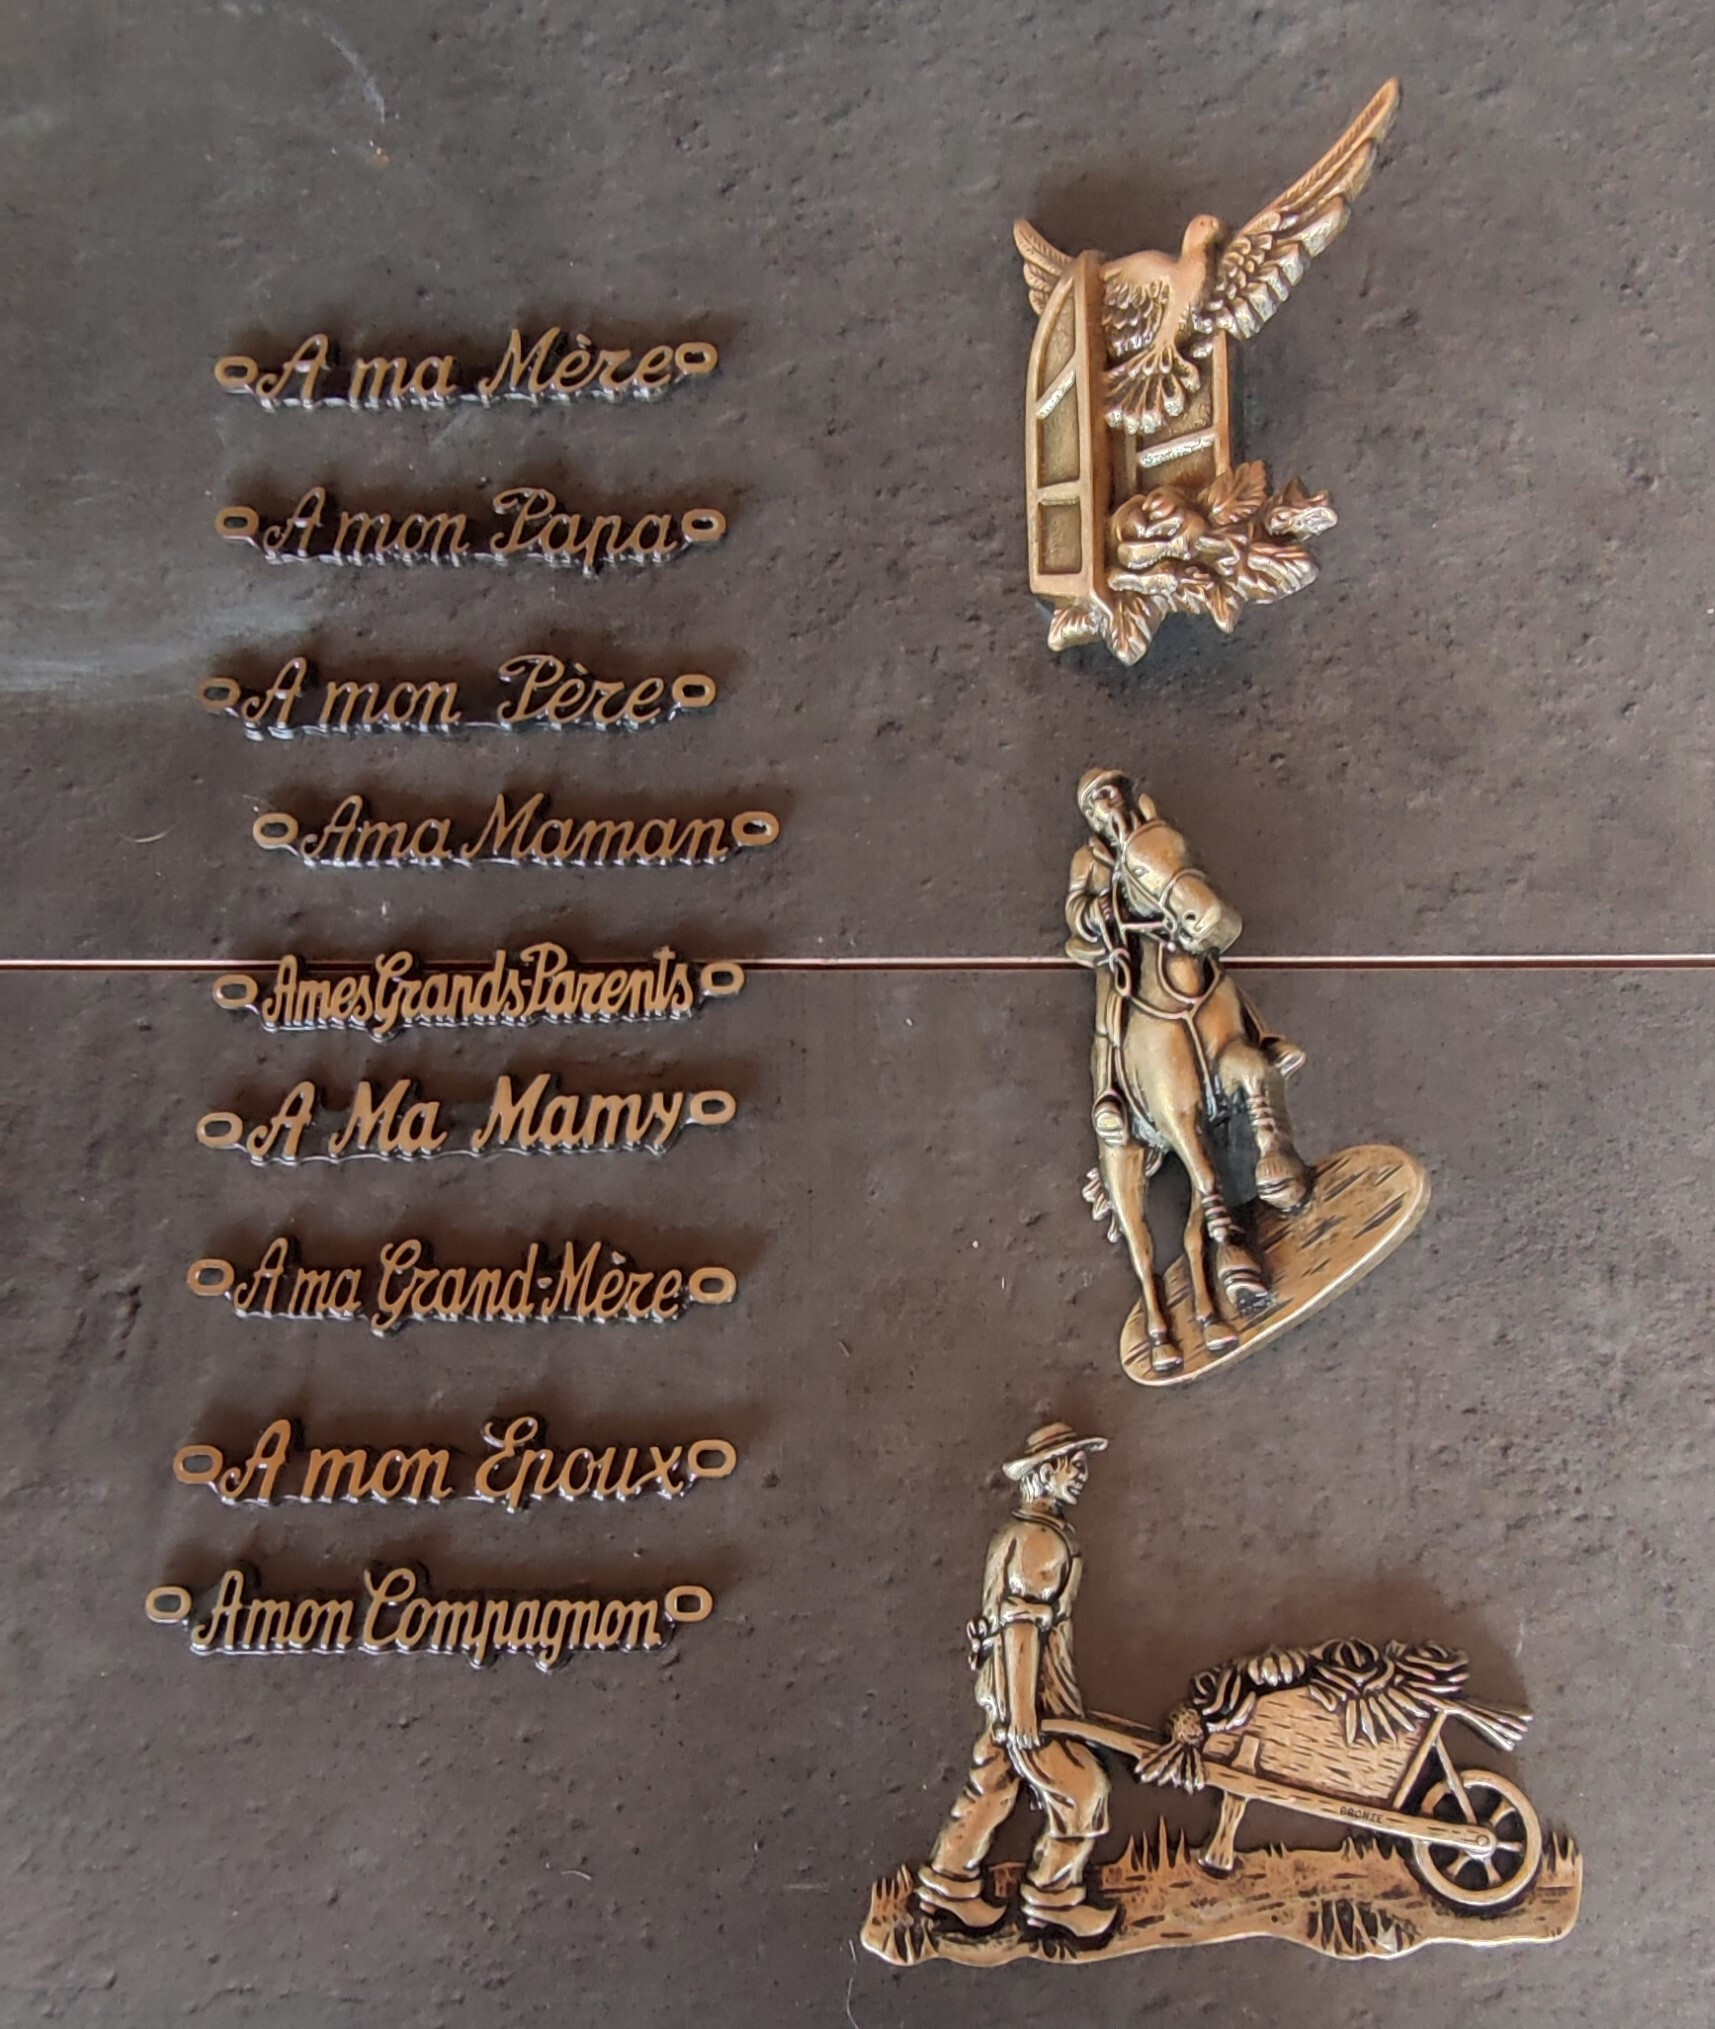 A ma Mère
A mon Papa
A mon Père
A ma Maman
A mes Grands-Parents
A Ma Mamy
A ma Grand-Mère
A mon Epoux
A mon Compagnon
BRONZE